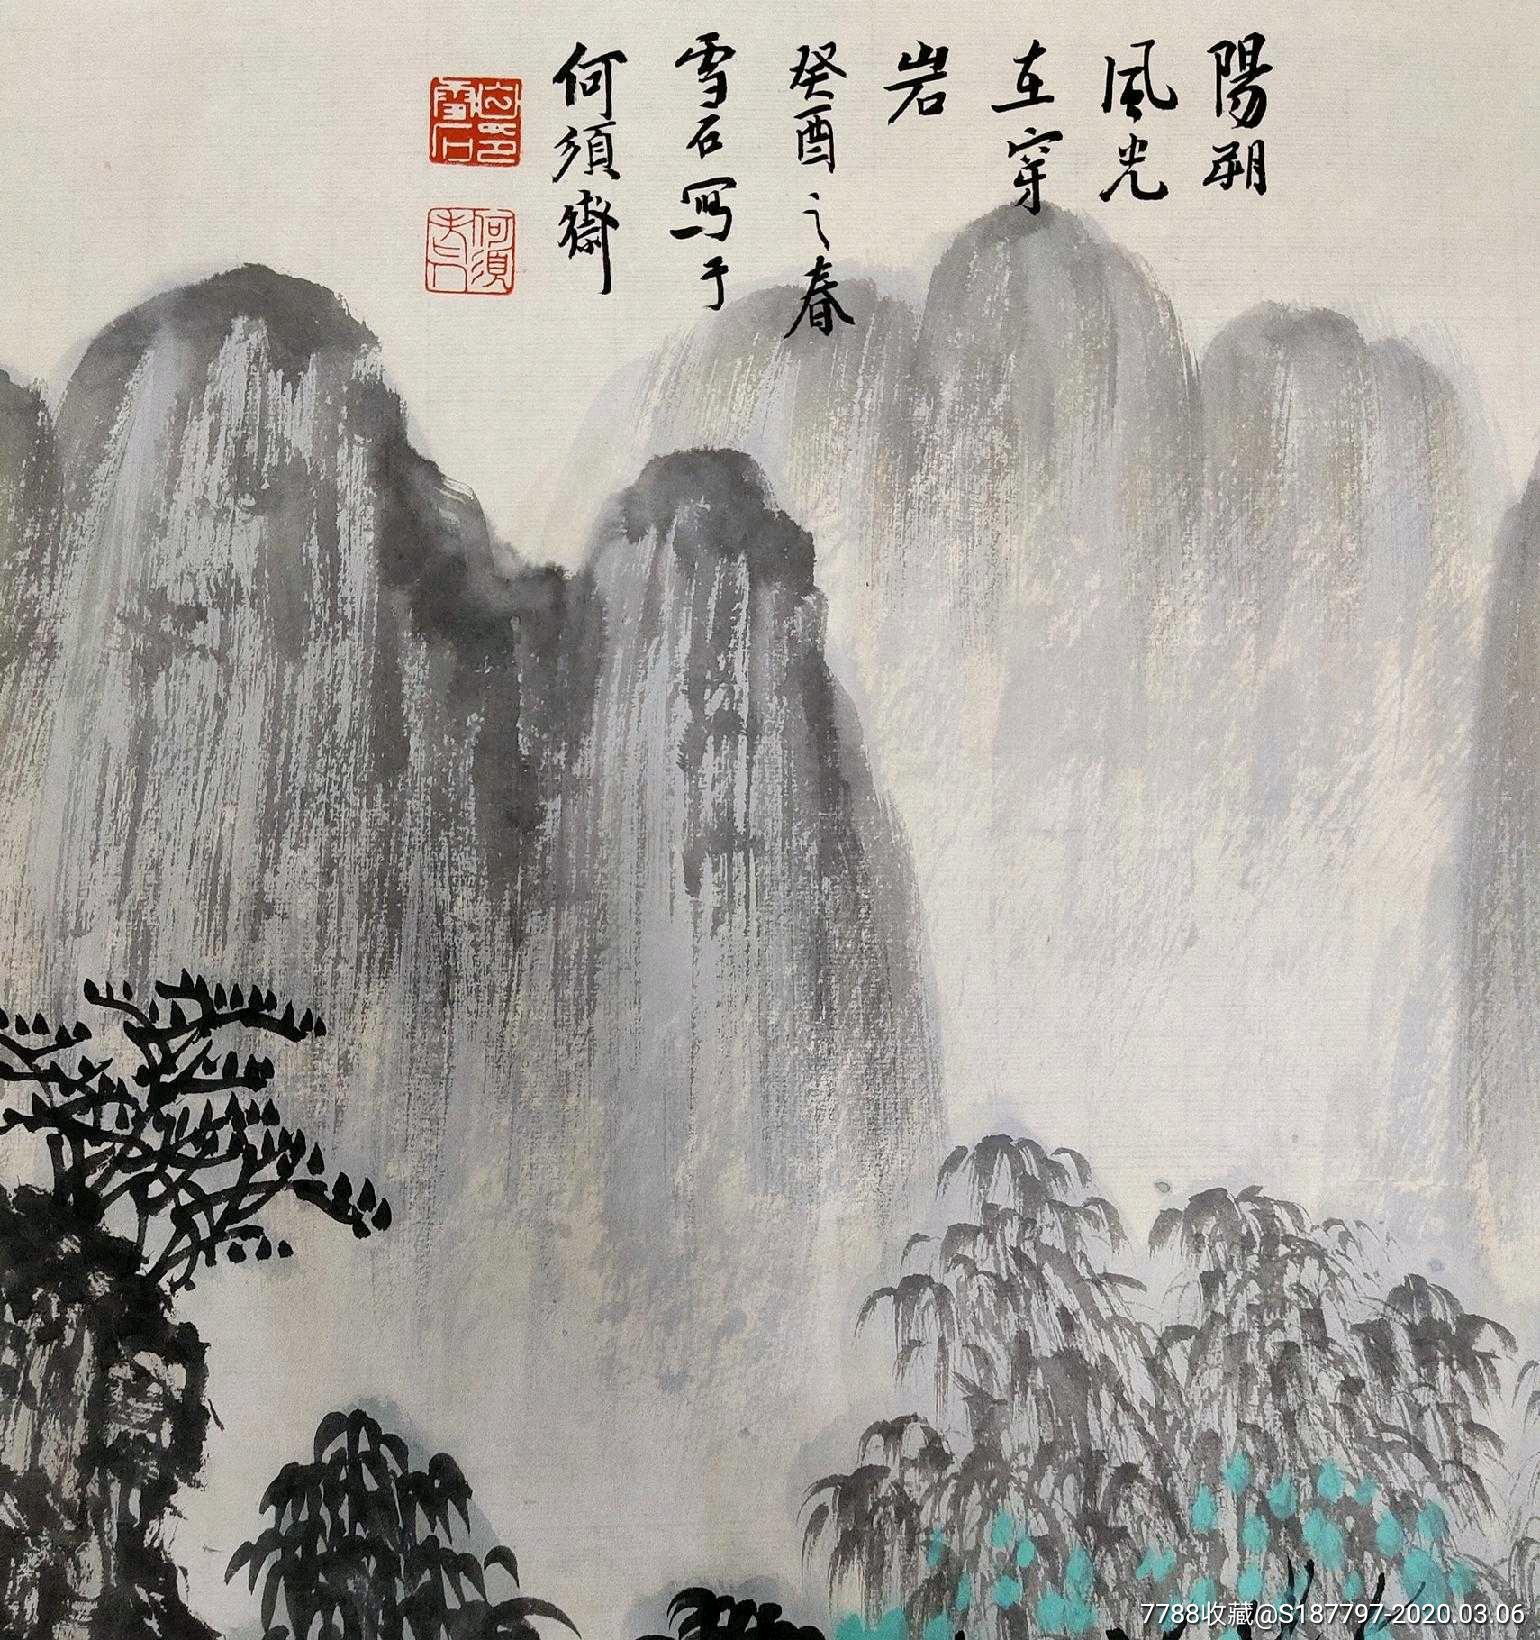 陽朔
風光
在穿
岩
癸酉之春
雪石寫于
何須齋
7788收藏@S187797-2020.03.06